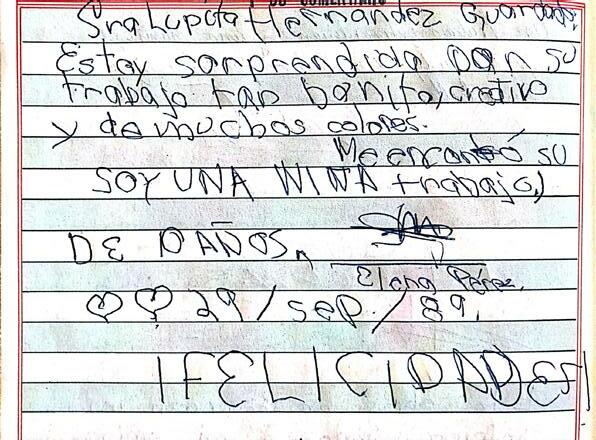 Sra Lupita Hernandez Guardado,
Estoy sorprendida por su
trabajo tan bonito, creativo
y de muchos colores.
Me encantó su
trabajo,
SOY UNA NIÑA
DE AÑOS,
Elena Pérez.
29/sep/89.
¡FELICIDADES!